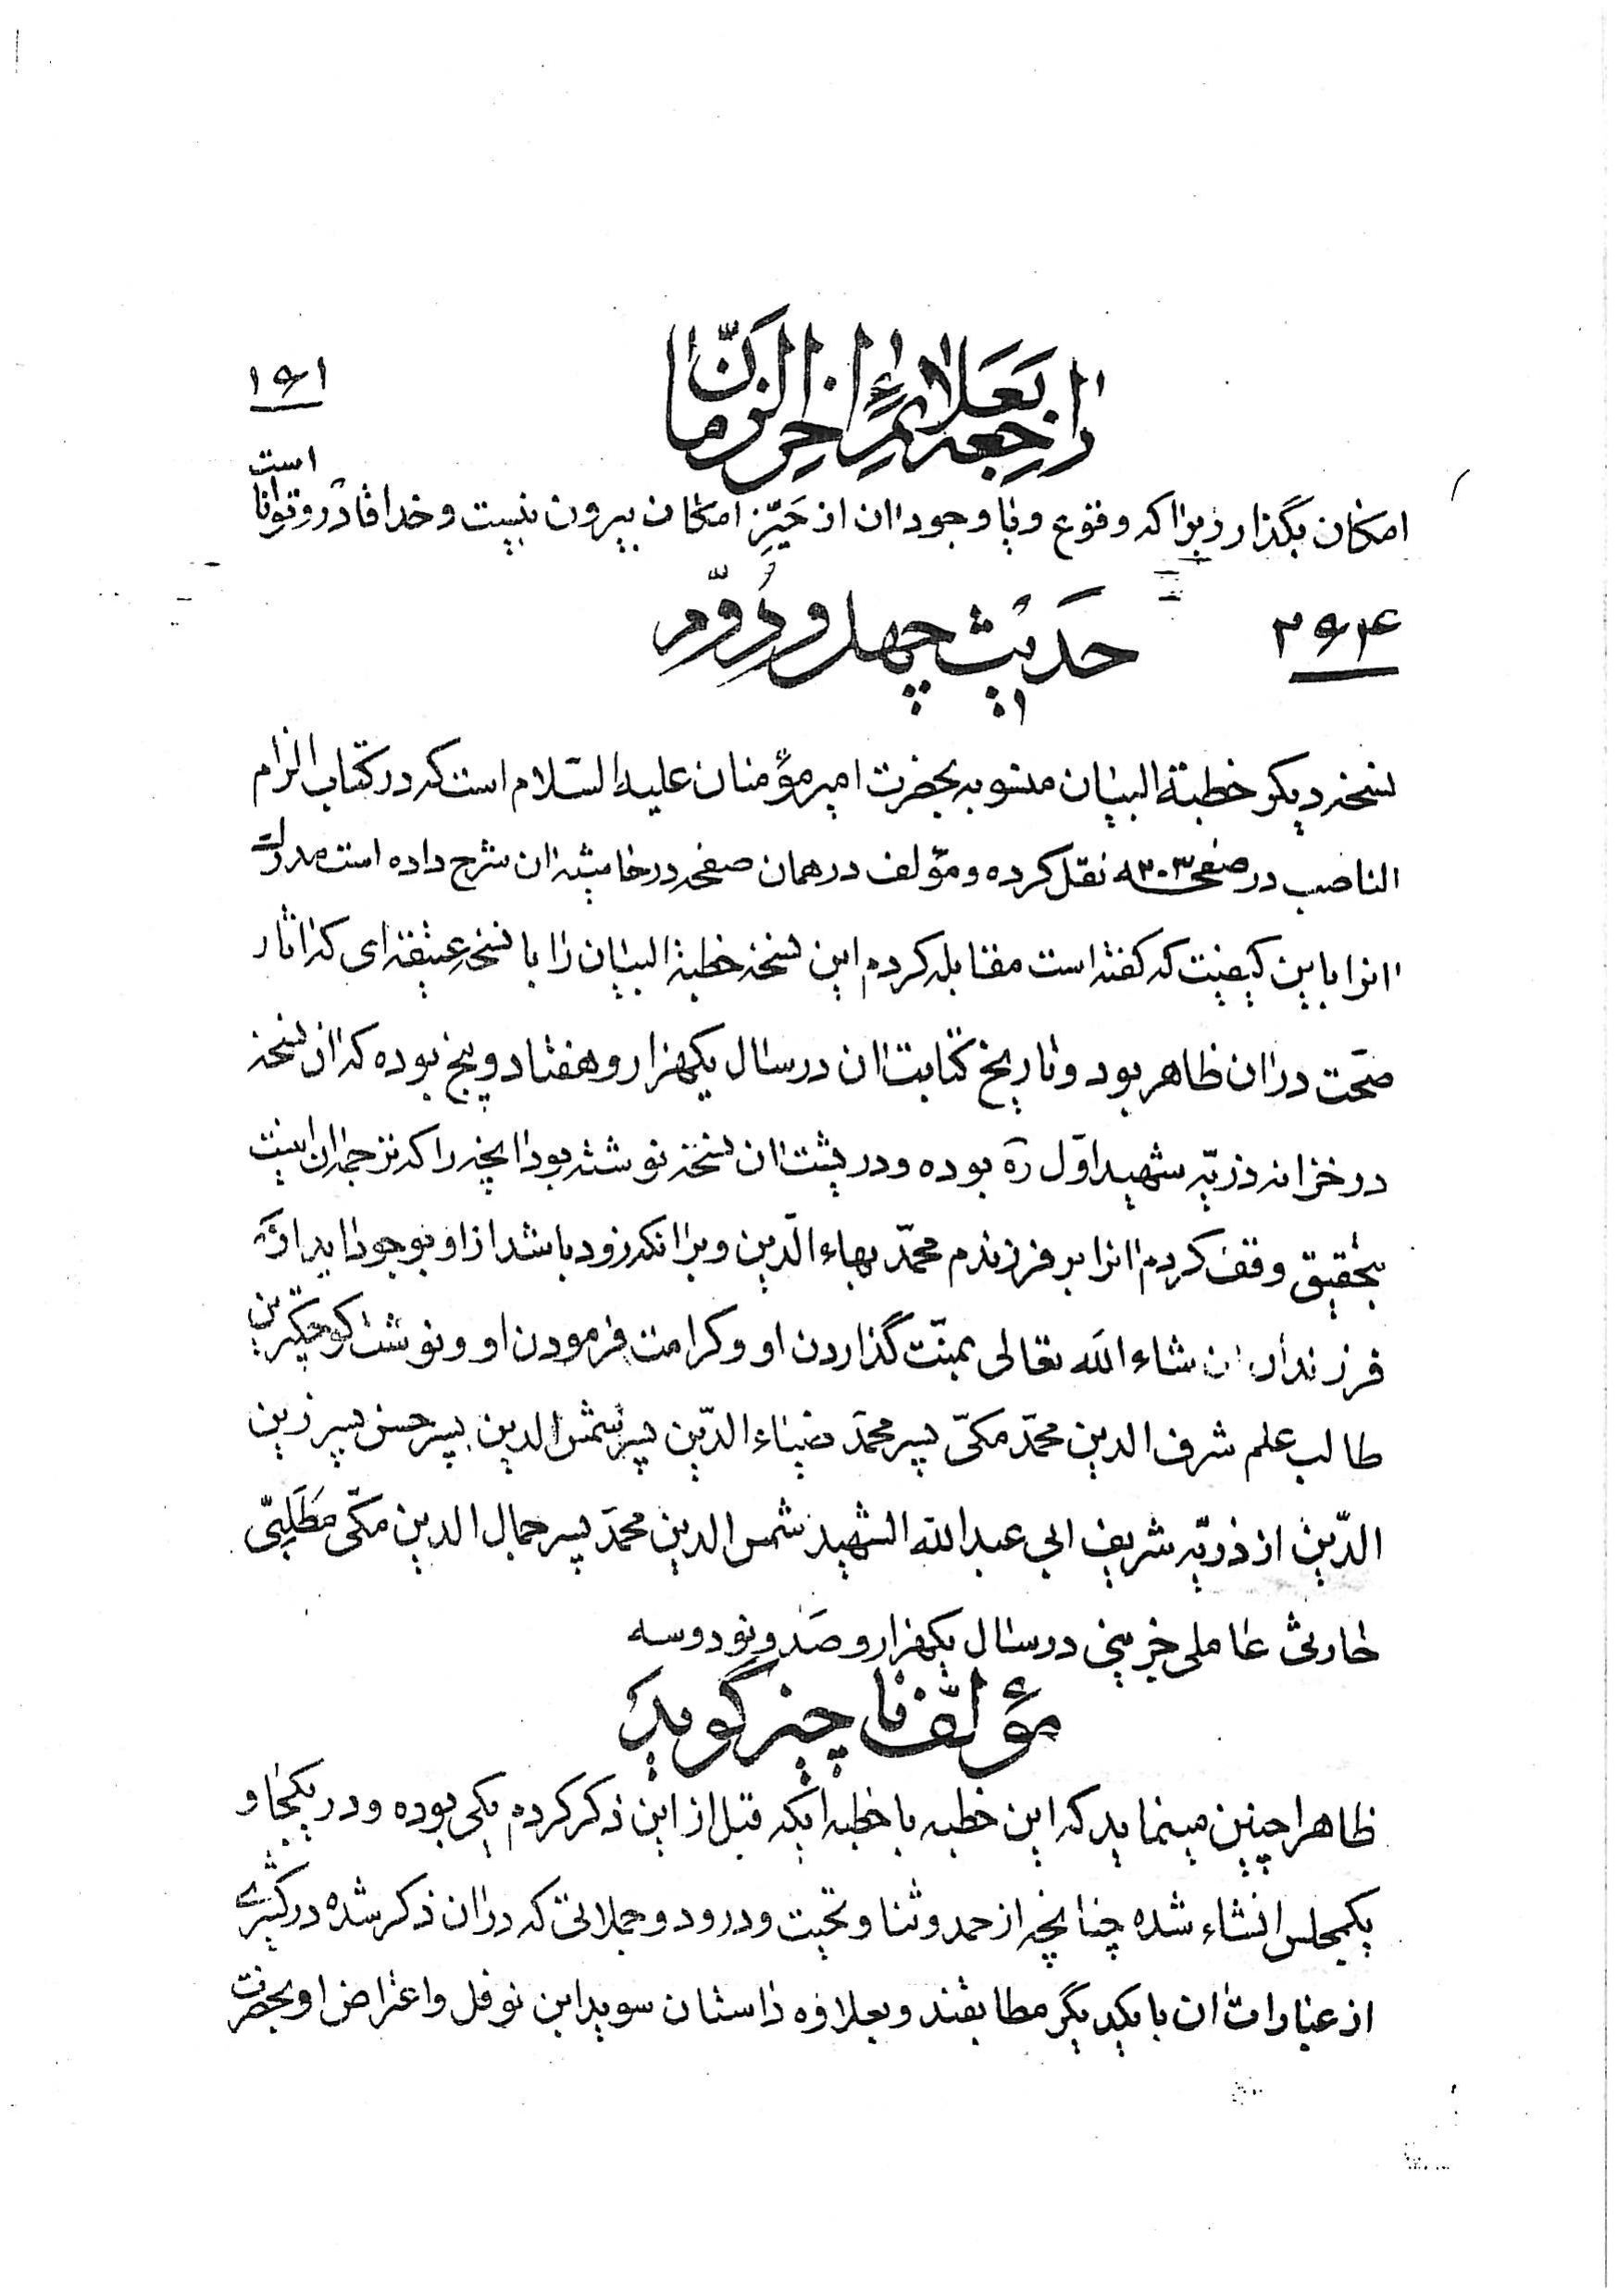 راجعه بعلائم اخر الزمان
۱۶۱
امکان بگذار زیرا که وقوع و یا وجود ان از حیّز امکان بیرون نیست و خدا قادر و توانا است
حدیث چهل و دوّم
نسخه دیگر خطبة البیان منسوبه بحضرت امیر مؤمنان علیه السّلام است که در کتاب الزام
الناصب در صفحه ۳۰۳ نقل کرده و مؤلف در همان صفحه در حاشیه ان شرح داده است مدرک
انرا باین کیفیت که گفته است مقابله کردم این نسخه خطبة البیان را با نسخه عتیقه ای که اثار
صحّت در ان ظاهر بود و تاریخ کتابت ان در سال یکهزار و هفتاد و پنج بوده که ان نسخه
در خزانه ذرّیّه شهید اوّل ره بوده و در پشت ان نسخه نوشته بود انچه را که ترجمه ان اینست
بتحقیق وقف کردم انرا بر فرزندم محمّد بهاء الدّین و بر انکه زود باشد از او بوجود اید از
فرزندان ان شاء الله تعالی بمنّت گذاردن او و کرامت فرمودن او و نوشت کوچکترین
طالب علم شرف الدین محمّد مکّی پسر محمّد ضیاء الدّین پسر شمس الدین پسر حسن پسر زین
الدّین از ذرّیّه شریف ابی عبد الله الشهید شمس الدین محمّد پسر جمال الدین مکّی مطّلبّی
حارثی عاملی جزینی در سال یکهزار و صد و نود و سه
مؤلّف ناچیز گوید
ظاهرا چنین مینماید که این خطبه با خطبه ایکه قبل از این ذکر کردم یکی بوده و در یکجا و
یکمجلس انشاء شده چنانچه از حمد و ثنا و تحیت و درود و جملاتی که در ان ذکر شده در کثیری
از عبارات ان با یکدیگر مطابقند و بعلاوه داستان سوید ابن نوفل و اعتراض او بحضرت